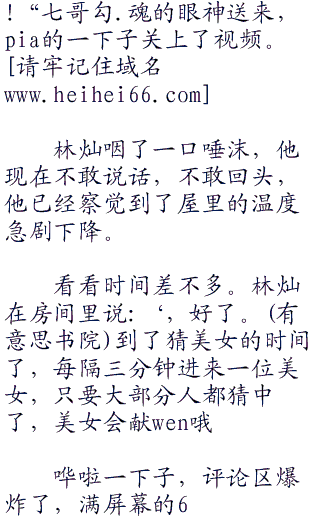 ！“七哥勾.魂的眼神送来，
pia的一下子关上了视频。
[请牢记住域名
www.heihei66.com]
林灿咽了一口唾沫，他
现在不敢说话，不敢回头，
他已经察觉到了屋里的温度
急剧下降。
看看时间差不多。林灿
在房间里说：‘，好了。(有
意思书院)到了猜美女的时间
了，每隔三分钟进来一位美
女，只要大部分人都猜中
了，美女会献wen哦
哗啦一下子，评论区爆
炸了，满屏幕的6